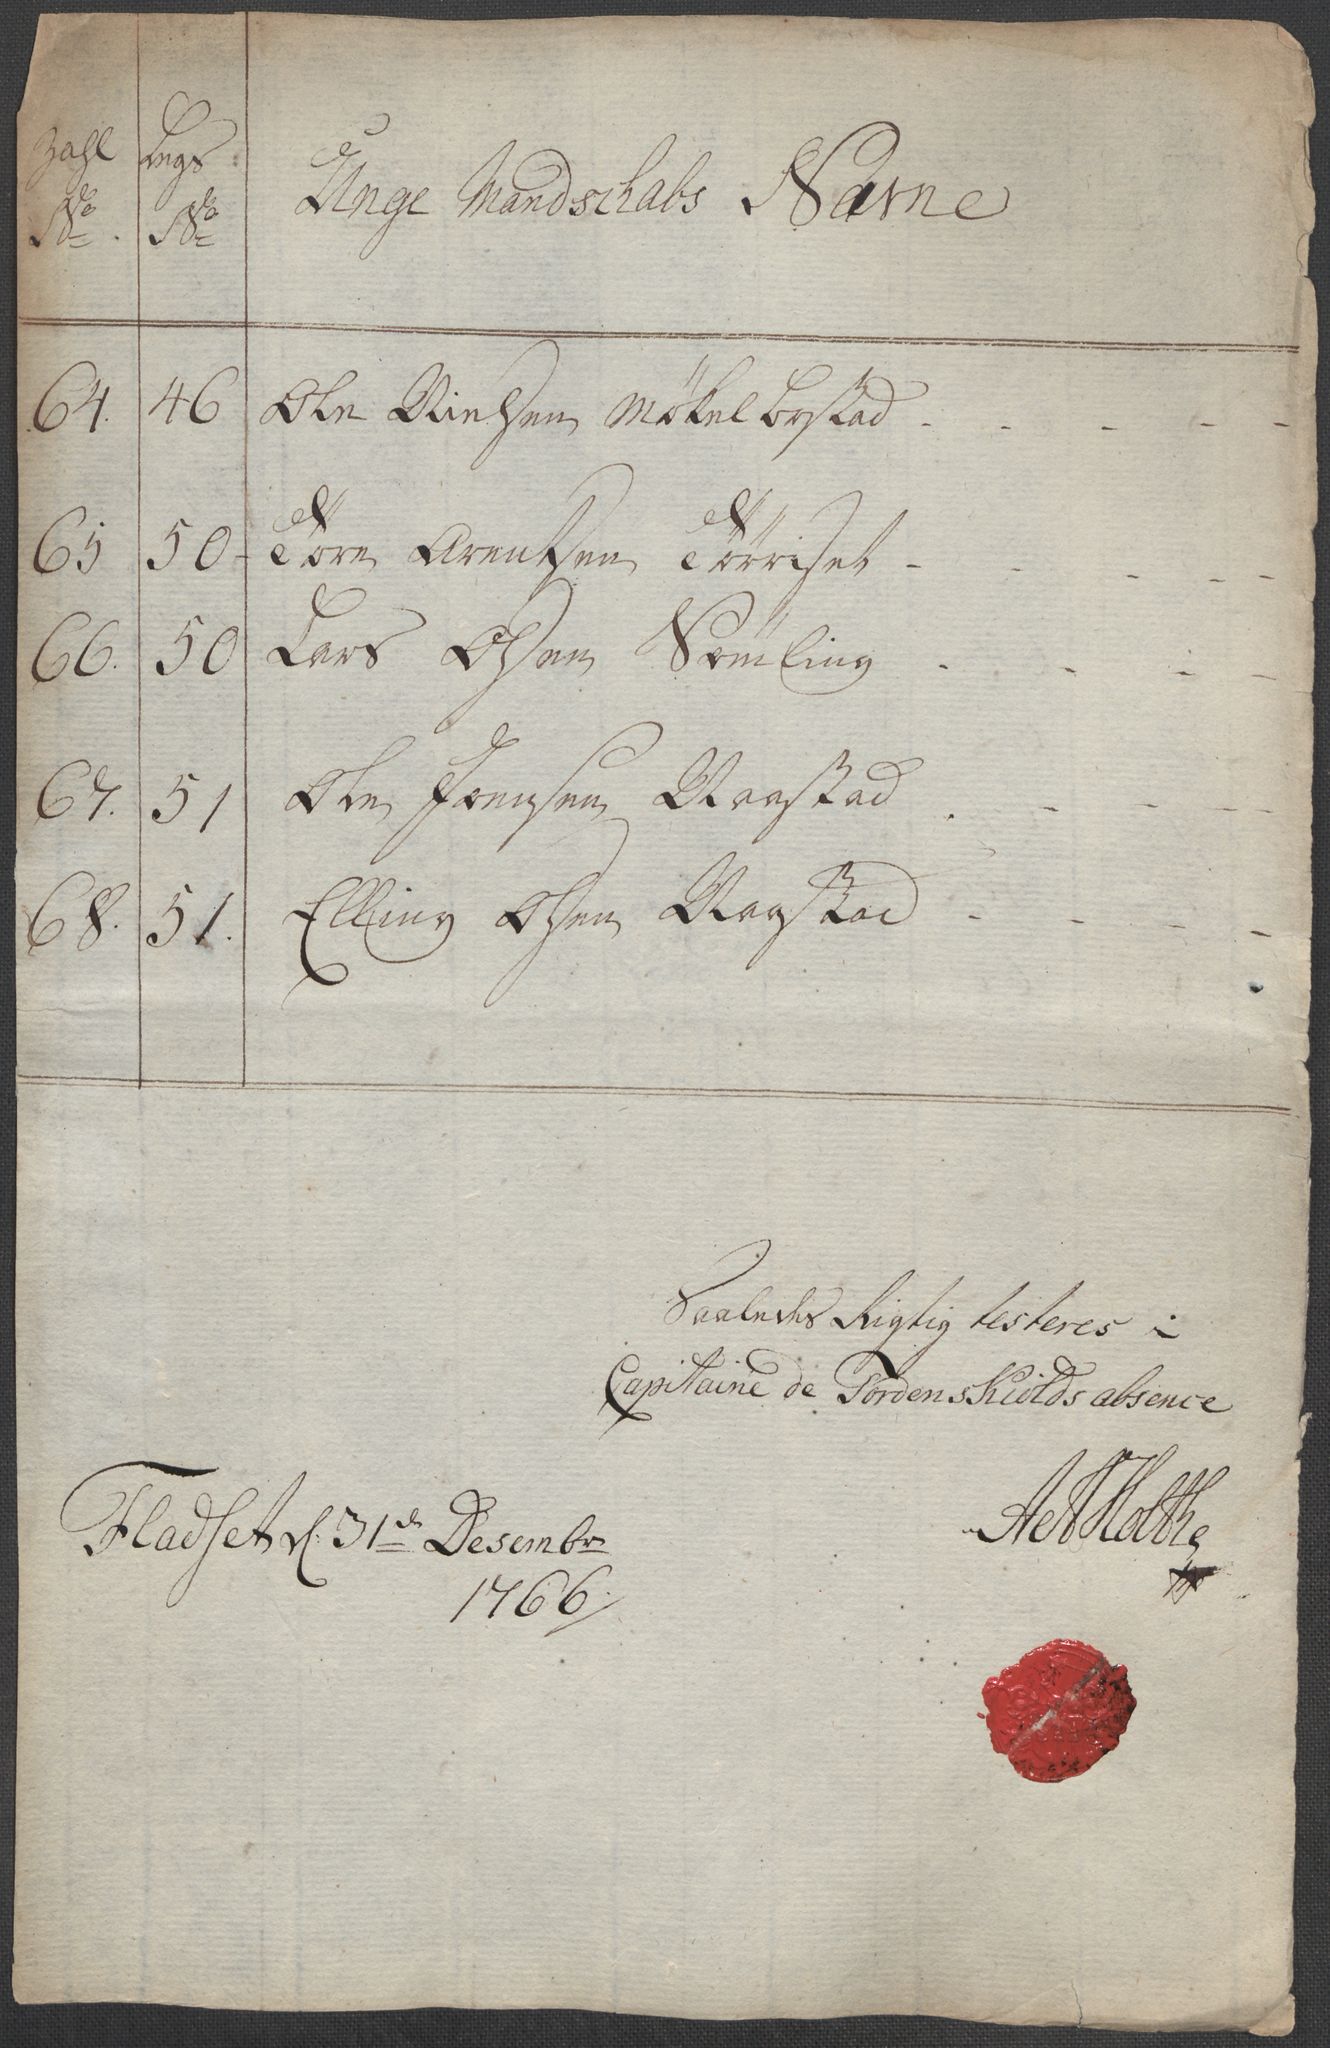 Zahl Legs Unge Mandschabs Navne
No. No
64. 46 Ole Nielsen Mökelbostad - - - - -
65 50 - Tore Arentsen Törriset - - - - -
66. 50 Lars Olsen - - - -
67. 51 Ole Joensen Naastad - - - -
68. 51. Elling Olsen Naastad - - - -
Saaledes Rigtig testeres i
Capitaine de Tordenskiolds absence
Fladset d. 31de Desembr
1766.
Holthe